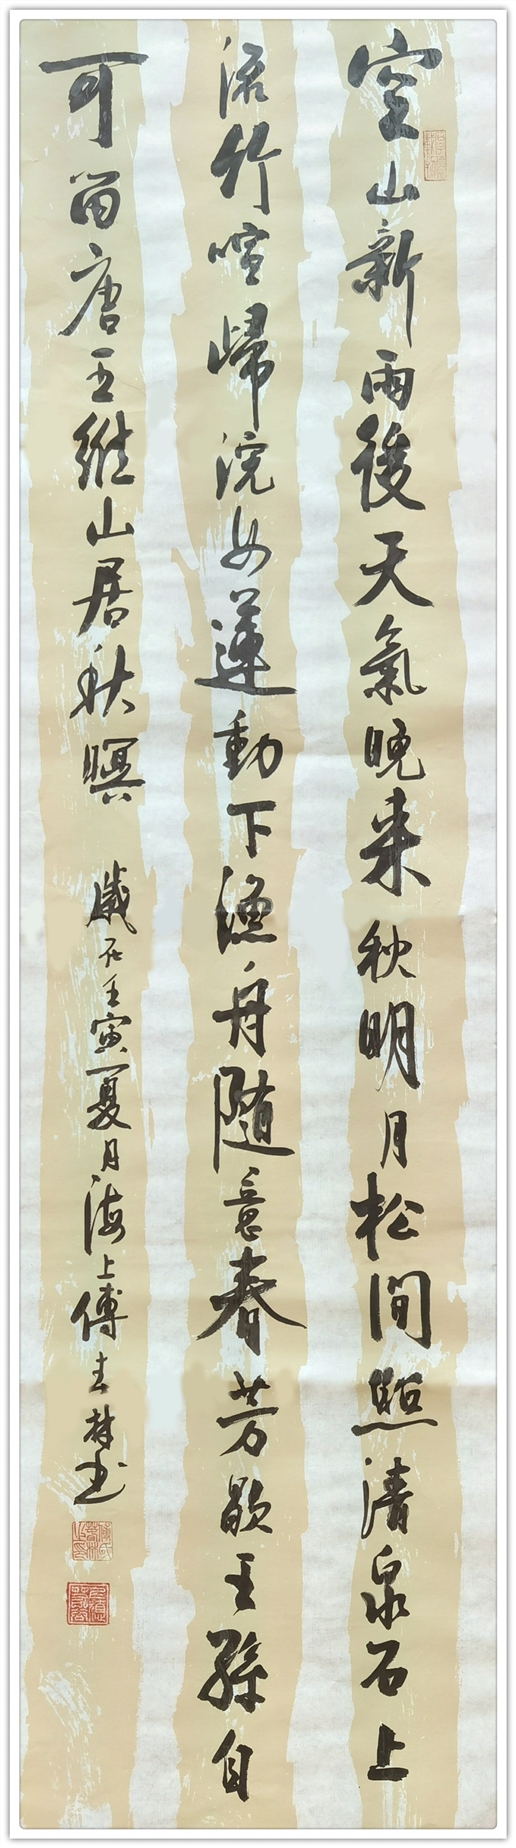 空山新雨後天氣晚来秋明月松間照清泉石上
流竹喧歸浣女蓮動下漁舟隨意春芳歇王孫自
可留唐王維山居秋暝
歲在壬寅夏月海上傅